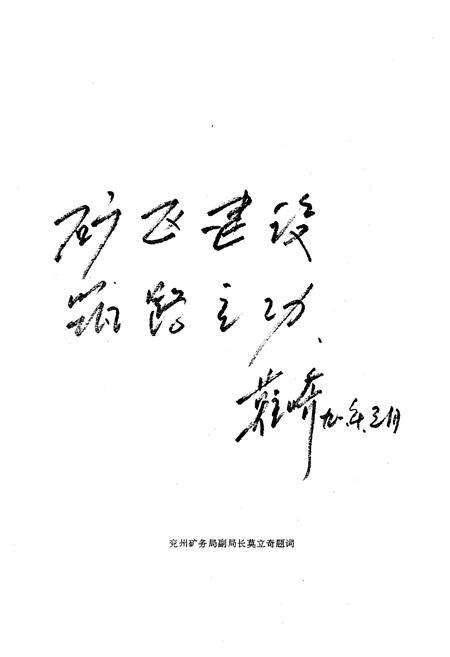 矿区建设
筑路立功
莫立奇 九一年三月
兖州矿务局副局长莫立奇题词